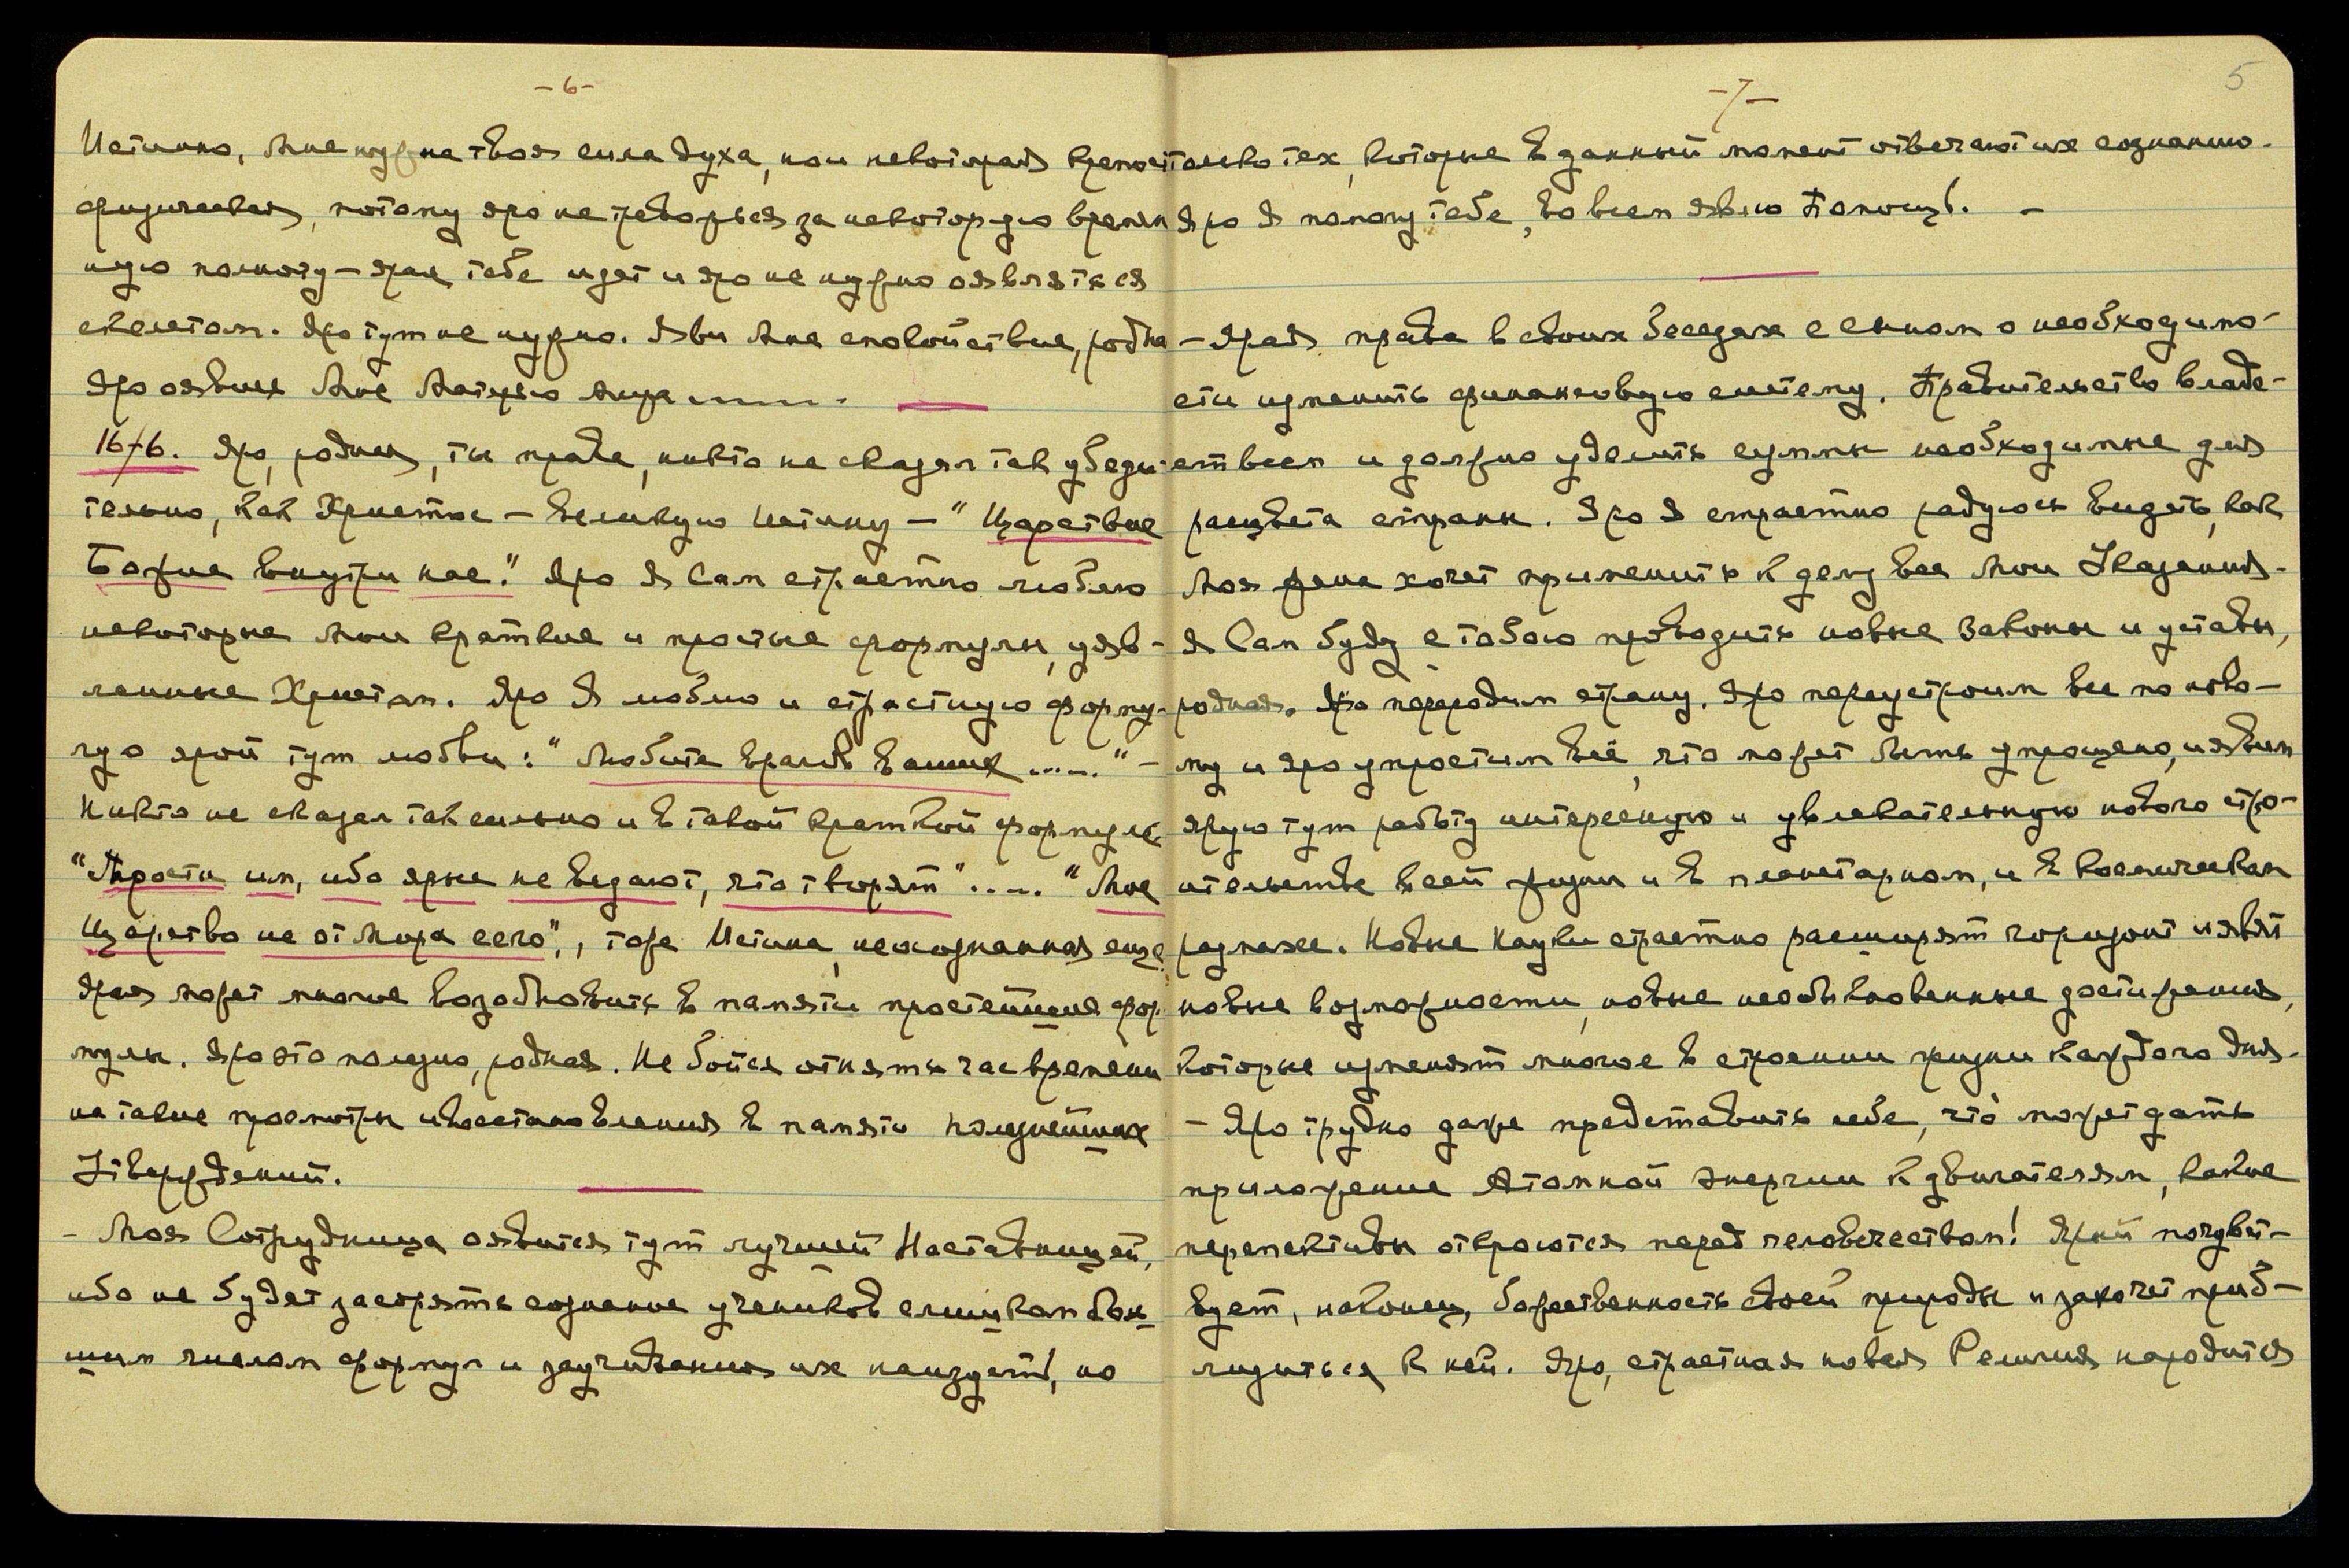 -6-
Истинно, Мне нужна твоя сила духа, но и некоторая крепость
физическая, потому яро не тревожься за некоторую времен
ную полноту — ярая тебе идет и яро не нужно оявляться
скелетом. Яро тут не нужно. Яви Мне спокойствие, родная
Яро оявись Мне Матерью Мира ........
16/6. Яро, родная, ты права, никто не сказал так убеди-
тельно, как Христос — великую Истину — "Царствие
Божие внутри нас." Яро Я Сам страстно люблю
некоторые Мои краткие и простые формулы, уяв-
ленные Христом. Яро Я люблю и страстную форму-
лу о ярой тут любви: "Любите врагов Ваших ....." —
Никто не сказал так сильно и в такой краткой формуле.
"Прости им, ибо ярые не ведают, что творят" ..... "Мое
Царство не от Мира сего", тоже Истина, неосознанная еще.
Ярая может многие возобновить в памяти простейшие фор-
мулы. Яро это полезно, родная. Не бойся отнять час времени
на такие просмотры и восстановления в памяти полезнейших
Утверждений.
- Моя Сотрудница оявится тут лучшей Наставницей,
ибо не будет засорять сознание учеников слишком боль-
шим числом формул и заучиванием их наизусть, но
-7-
5
только тех, которые в данный момент отвечают их сознанию.
Яро Я помогу тебе, во всем явлю Помощь. —
- Ярая права в своих беседах с сыном о необходимо-
сти изменить финансовую систему. Правительство владе-
ет всем и должно уделить суммы необходимые для
расцвета страны. Яро Я страстно радуюсь видеть, как
Моя жена хочет применить к делу все Мои Указания.
Я Сам буду с тобою проводить новые Законы и уставы,
родная. Яро переродим страну. Яро переустроим все по ново-
му и яро упростим всё, что может быть упрощено, и явим
ярую тут работу интересную и увлекательную нового стро-
ительства всей жизни и в планетарном, и в космическом
размахе. Новые Науки страстно расширят горизонт и явят
новые возможности, новые необыкновенные достижения,
которые изменят многое в строении жизни каждого дня.
- Яро трудно даже представить себе, что может дать
приложение Атомной энергии к двигателям, какие
перспективы откроются перед человечеством! Ярый почувст-
вует, наконец, божественность своей природы и захочет приб-
лизиться к ней. Яро, страстная новая Религия народится